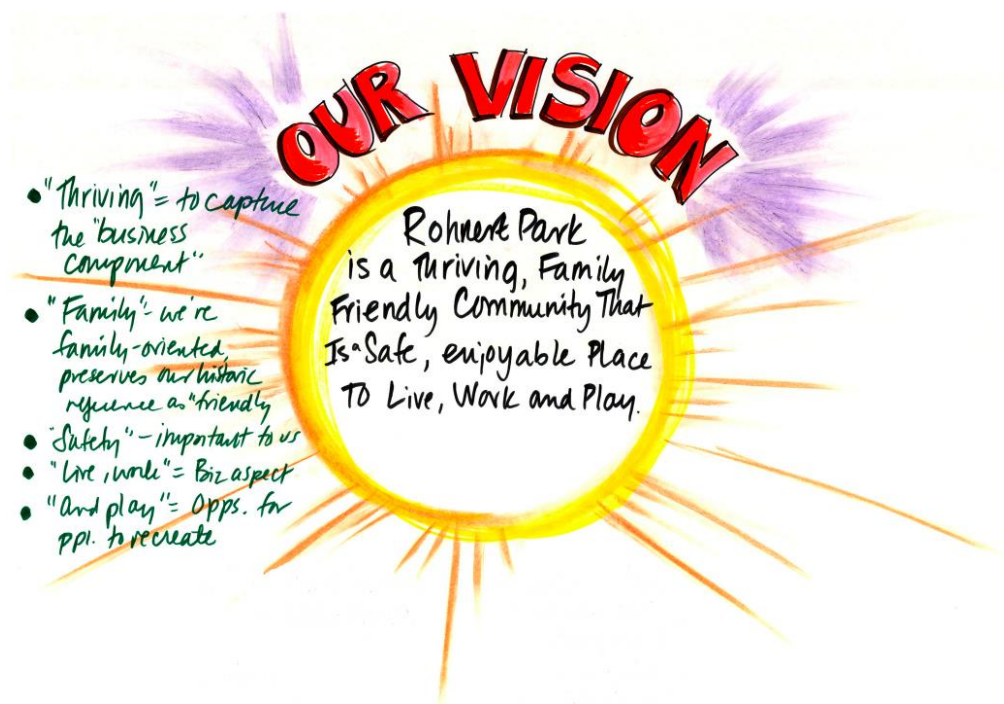 OUR VISION
Rohnert Park
is a Thriving, Family
Friendly Community That
Is a Safe, enjoyable Place
To Live, Work and Play.
• "Thriving" = to capture
the "business
component"
• "Family" - we're
family-oriented,
preserves our historic
reference as "friendly
• "Safety" - important to us
• "Live, work" = Biz aspect
• "And play" = Opps. for
ppl. to recreate